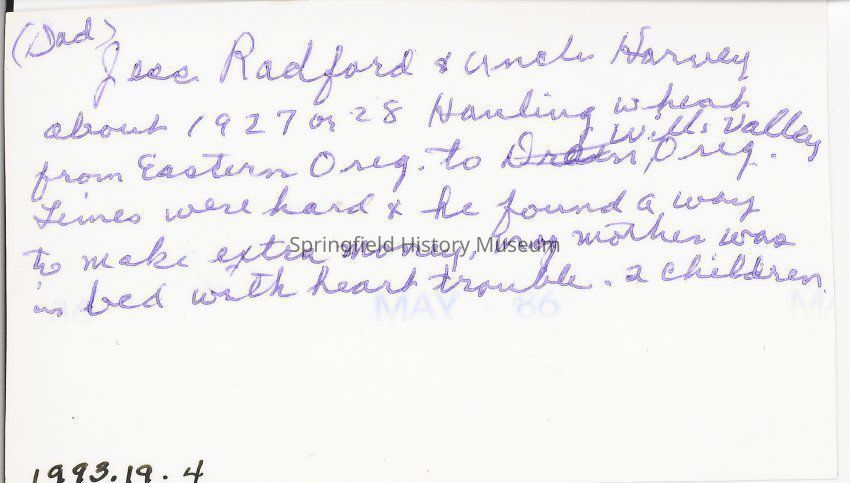 (Dad)
Jess Radford & Uncle Harvey
about 1927 or 28 Hauling wheat
from Eastern Oreg. to Drain, Oreg.
Will. Valley
Times were hard & he found a way
to make extra money, my mother was
in bed with heart trouble. 2 children
Springfield History Museum
MAY 86
1993.19.4